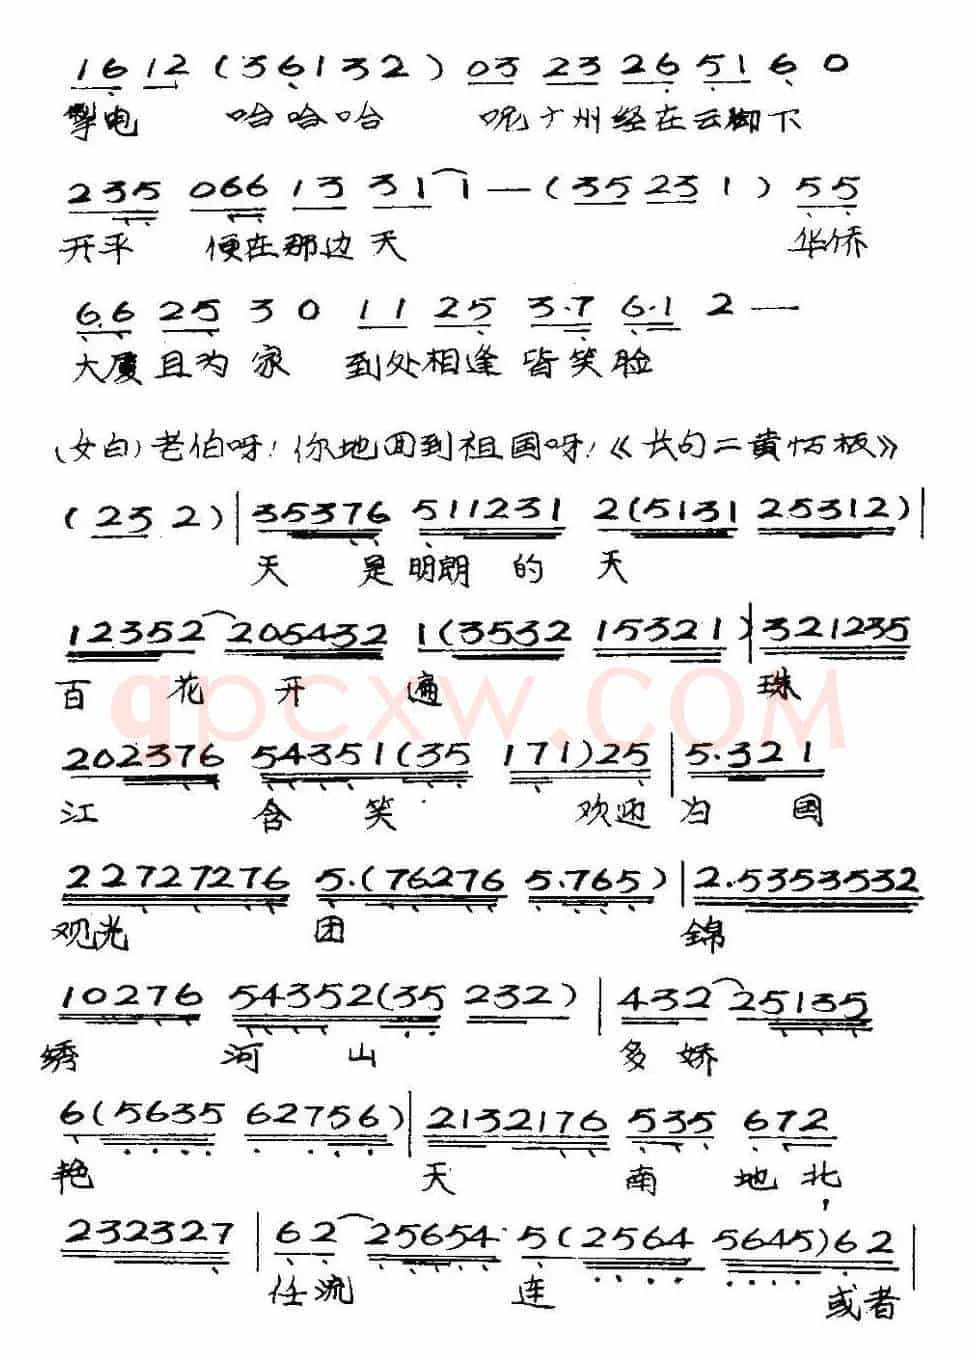 16 12 (36132) 03 23 26 51 6 0
掣电 哈哈哈 呢广州经在云脚下
235 066 13 31 1 — (35 231) 55
开平 便在那边天 华侨
6.6 25 3 0 11 25 3.7 6.1 2 —
大厦且为家 到处相逢皆笑脸
(女白)老伯呀!你地回到祖国呀!《长句二黄慢板》
(23 2) | 35376 511231 2(5131 25312) |
天是明朗的天
12352 205432 1(3532 15321) | 321235
百花开遍 珠
202376 54351(35 171)25 | 5.321
江含笑 欢迎归国
22727276 5.(76276 5.765) | 2.5353532
观光团 錦
10276 54352(35 232) | 432 25135
绣河山 多娇
6(5635 62756) | 2132176 535 672
艳 天南地北
232327 | 62 25654 5(2564 5645)62 |
任流连 或者
qpcxw.com